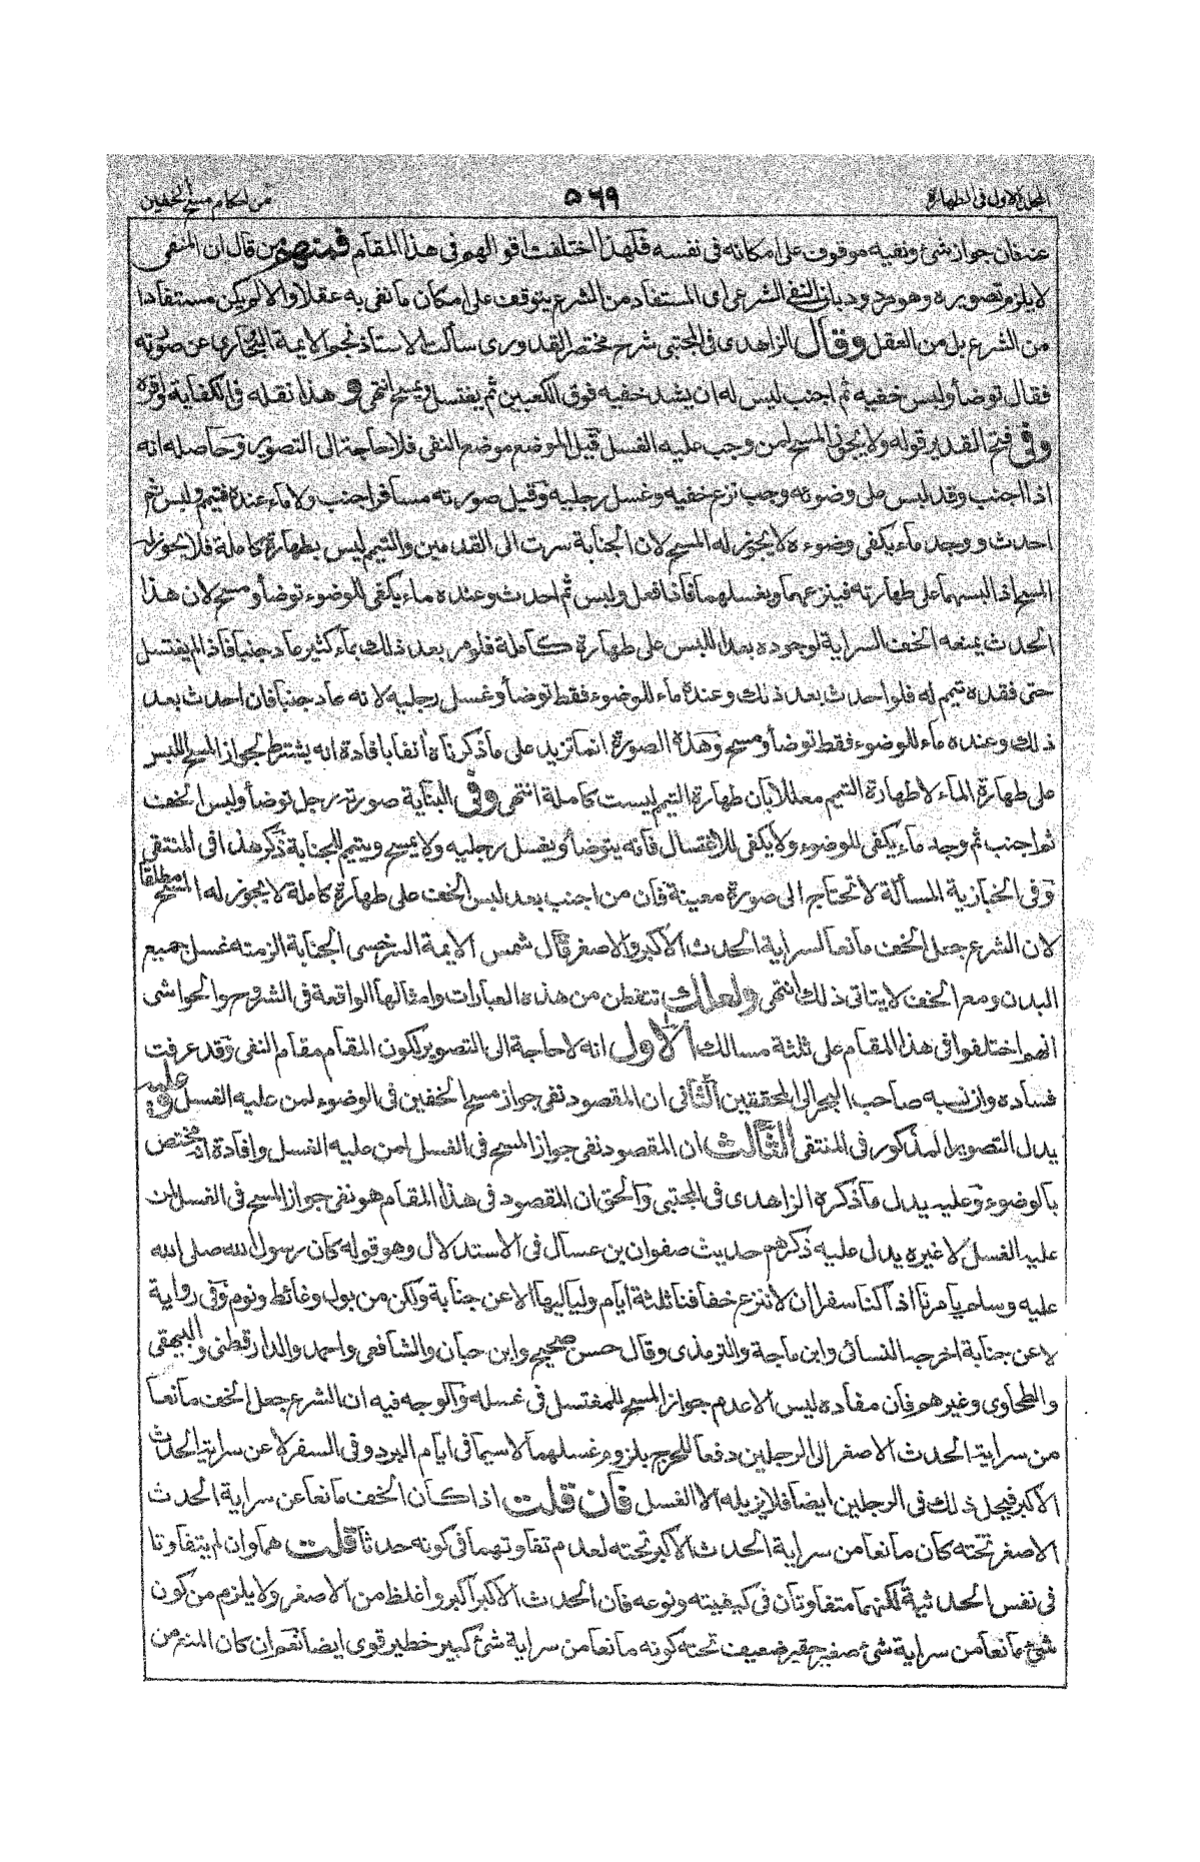 المجلد الاول فى الطهارة
۵۶۹
من احكام مسح الخفين
عنه فان جواز شئ ونفيه موقوف على امكانه فى نفسه فلهذا اختلفت اقوالهم فى هذا المقام فمنهم من قال ان المنفى
لا يلزم تصويره وهو مردود بان النفى الشرعى اى المستفاد من الشرع يتوقف على امكان ما نفى به عقلا والا لم يكن مستفادا
من الشرع بل من العقل وقال الزاهدى فى المجتبى شرح مختصر القدورى سألت الاستاذ نجم الايمة البخارى عن صورته
فقال توضأ ولبس خفيه ثم اجنب ليس له ان يشد خفيه فوق الكعبين ثم يغتسل ويمسح انتهى وهذا نقله فى الكفاية واقره
وفى فتح القدير قوله ولا يجوز المسح لمن وجب عليه الغسل قيل الموضع موضع النفى فلا حاجة الى التصوير وحاصله انه
اذا اجنب وقد لبس على وضوئه وجب نزع خفيه وغسل رجليه وقيل صورته مسافر اجنب ولا ماء عنده فتيمم ولبس ثم
احدث ووجد ماء يكفى وضوءه لا يجوز له المسح لان الجنابة سرت الى القدمين والتيمم ليس بطهارة كاملة فلا يجوز له
المسح اذا لبسهما على طهارته فينزعهما ويغسلهما فاذا فعل ولبس ثم احدث وعنده ماء يكفى للوضوء توضأ ومسح لان هذا
الحدث يمنعه الخف السراية لوجوده بعد اللبس على طهارة كاملة فلو مر بعد ذلك بماء كثير عاد جنبا فاذا لم يغتسل
حتى فقده تيمم له فلو احدث بعد ذلك وعنده ماء للوضوء فقط توضأ وغسل رجليه لانه عاد جنبا فان احدث بعد
ذلك وعنده ماء للوضوء فقط توضأ ومسح وهذه الصورة انما تزيد على ما ذكرناه آنفا بافادة انه يشترط لجواز المسح اللبس
على طهارة الماء لا طهارة التيمم معللا بان طهارة التيمم ليست كاملة انتهى وفى البناية صورته رجل توضأ ولبس الخف
ثم اجنب ثم وجد ماء يكفى للوضوء ولا يكفى للاغتسال فانه يتوضأ ويغسل رجليه ولا يمسح ويتيمم للجنابة ذكر هذا فى المنتقى
وفى الخبازية المسألة لا تحتاج الى صورة معينة فان من اجنب بعد لبس الخف على طهارة كاملة لا يجوز له المسح مطلقا
لان الشرع جعل الخف مانعا لسراية الحدث الاكبر والاصغر قال شمس الايمة السرخسى الجنابة الزمته غسل جميع
البدن ومع الخف لا يتاتى ذلك انتهى ولعلك تتفطن من هذه العبارات وامثالها الواقعة فى الشروح والحواشى
انهم اختلفوا فى هذا المقام على ثلثة مسالك الاول انه لا حاجة الى التصوير لكون المقام مقام النفى وقد عرفت
فساده وان نسبه صاحب البحر الى المحققين الثانى ان المقصود نفى جواز مسح الخفين فى الوضوء لمن عليه الغسل وعليه
يدل التصوير المذكور فى المنتقى الثالث ان المقصود نفى جواز المسح فى الغسل لمن عليه الغسل وافادة انه مختص
بالوضوء وعليه يدل ما ذكره الزاهدى فى المجتبى والحق ان المقصود فى هذا المقام هو نفى جواز المسح فى الغسل لمن
عليه الغسل لا غيره يدل عليه ذكرهم حديث صفوان بن عسال فى الاستدلال وهو قوله كان رسول الله صلى الله
عليه وسلم يامرنا اذا كنا سفرا ان لا ننزع خفافنا ثلثة ايام ولياليها الا عن جنابة ولكن من بول وغائط ونوم وفى رواية
لا عن جنابة اخرجه النسائى وابن ماجة والترمذى وقال حسن صحيح وابن حبان والشافعى واحمد والدارقطنى والبيهقى
والطحاوى وغيرهم فان مفاده ليس الا عدم جواز المسح للمغتسل فى غسله والوجه فيه ان الشرع جعل الخف مانعا
من سراية الحدث الاصغر الى الرجلين دفعا للحرج بلزوم غسلهما لا سيما فى ايام البرد وفى السفر لا عن سراية الحدث
الاكبر فيحل ذلك فى الرجلين ايضا فلا يزيله الا الغسل فان قلت اذا كان الخف مانعا عن سراية الحدث
الاصغر تحته كان مانعا من سراية الحدث الاكبر تحته لعدم تفاوتهما فى كونه حدثا قلت هما وان لم يتفاوتا
فى نفس الحدثية لكنهما متفاوتان فى كيفيته ونوعه فان الحدث الاكبر اكبر واغلظ من الاصغر ولا يلزم من كون
شئ مانعا من سراية شئ صغير حقير ضعيف تحته كونه مانعا من سراية شئ كبير خطير قوى ايضا نعم ان كان المنع من